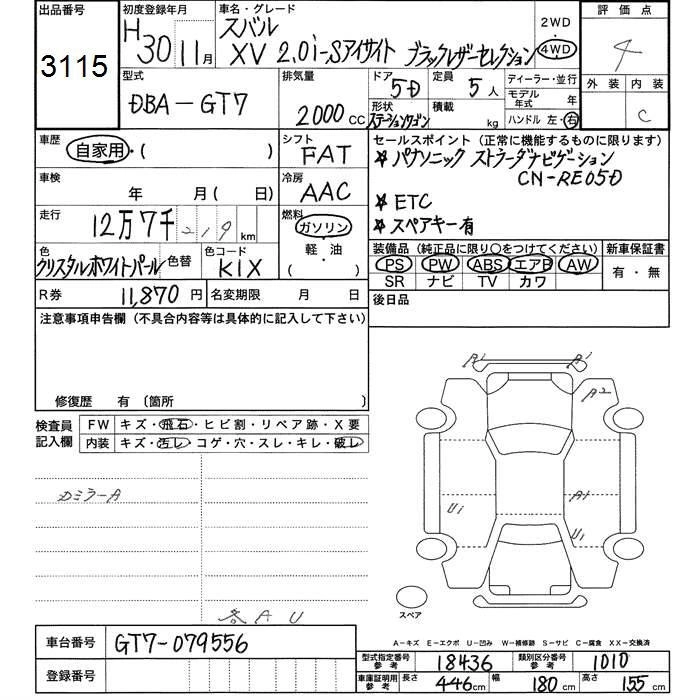 出品番号 初度登録年月 車名・グレード 2WD 評価点
3115 H30 11月 スバル XV 2.0i-Sアイサイト ブラックレザーセレクション 4WD 4
外装 内装
C
型式 排気量 ドア 5D 定員 5人 ディーラー・並行
DBA-GT7 2000cc 形状 ステーションワゴン 積載 kg モデル年式 年
ハンドル 左・右
車歴 自家用・( ) シフト FAT セールスポイント(正常に機能するものに限ります)
★ パナソニック ストラーダナビゲーション
CN-RE05D
車検 年 月(日) 冷房 AAC ★ ETC
走行 12万7千219km 燃料 ガソリン ★ スペアキー有
軽・油
( )
色 クリスタルホワイトパール 色替 色コード K1X
装備品(純正品に限り○をつけてください) 新車保証書
PS PW ABS エアB AW 有・無
SR ナビ TV カワ
R券 11,870円 名変期限 月 日 後日品
注意事項申告欄(不具合内容等は具体的に記入して下さい)
修復歴 有〔箇所
検査員記入欄 FW キズ・飛石・ヒビ割・リペア跡・X要
内装 キズ・汚レ・コゲ・穴・スレ・キレ・破レ
A1 A1
A2
カミラーA
Ui A1
Ui
スペア
各AU
A-キズ E-エクボ U-凹み W-補修跡 S-サビ C-腐食 XX-交換済
車台番号 GT7-079556
型式指定番号 参考 18436 類別区分番号 参考 1010
登録番号
車庫証明用 参考 長さ 446cm 幅 180cm 高さ 155cm